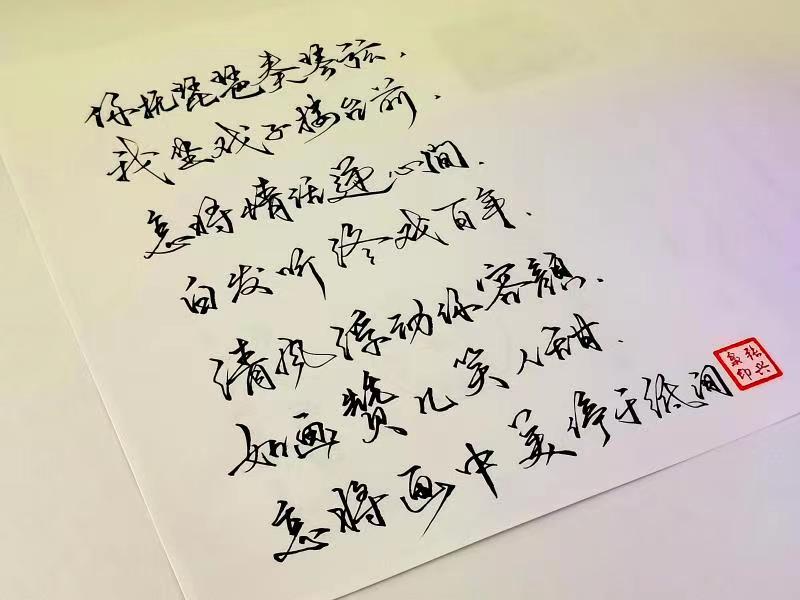 你抚琵琶奏琴弦,
我坐戏子楼台前,
怎将情话递心间.
白发听终戏百年.
清风浮动你容颜.
如画赞几笑人甜.
怎将画中美停于纸间
张兴
印